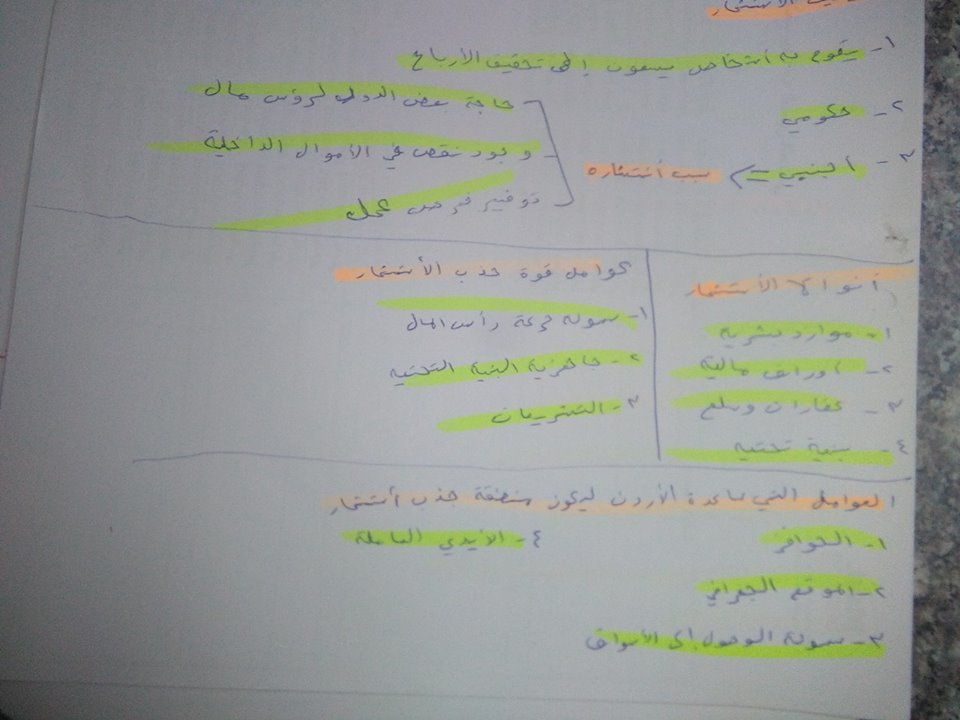 الأستثمار
١- يقوم به أشخاص يسعون إلى تحقيق الأرباح
٢- حكومي
٣- أجنبي => سبب أنتشاره
حاجة بعض الدول لرؤس مال
وجود نقص في الأموال الداخلية
توفير فرص عمل
أنواع الأستثمار
١- موارد بشرية
٢- أوراق مالية
٣- عقارات وسلع
٤- بنية تحتيه
عوامل قوة جذب الأستثمار
١- سهولة حركة رأس المال
٢- جاهزية البنية التحتيه
٣- التشريعات
العوامل التي ساعدة الأردن ليكون منطقة جذب أستثمار
١- الحوافز
٢- الموقع الجغرافي
٣- سهولة الوصول إلى الأسواق
٤- الأيدي العاملة